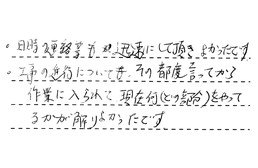 ・日時、連絡等が迅速にして頂きよかったです
・工事の進行についても、その都度言ってから
作業に入られて現在何(どの部分)をやって
るかが解りよかったです